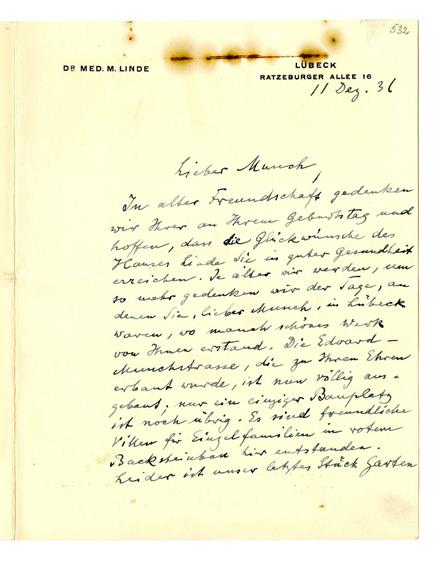 532
DR MED. M. LINDE
LÜBECK
RATZEBURGER ALLEE 16
11 Dez. 36
Lieber Munch,
In alter Freundschaft gedenken
wir Ihrer an Ihrem Geburtstag und
hoffen, dass die Glückwünsche des
Hauses Linde Sie in guter Gesundheit
erreichen. Je älter wir werden, um
so mehr gedenken wir der Tage, an
denen Sie, lieber Munch, in Lübeck
waren, wo manch schönes Werk
von Ihnen erstand. Die Edvard-
Munchstrasse, die zu Ihren Ehren
erbaut wurde, ist nun völlig aus-
gebaut; nur ein einziger Bauplatz
ist noch übrig. Es sind freundliche
Villen für Einzelfamilien in rotem
Backsteinbau hier entstanden.
Leider ist unser letztes Stück Garten